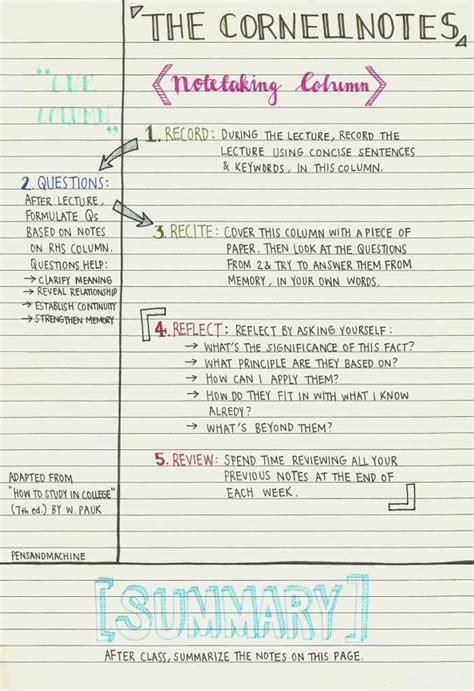 THE CORNELL NOTES
"CUE
COLUMN"
Notetaking Column
1. RECORD: DURING THE LECTURE, RECORD THE
LECTURE USING CONCISE SENTENCES
& KEYWORDS, IN THIS COLUMN.
2. QUESTIONS:
AFTER LECTURE,
FORMULATE QS
BASED ON NOTES
ON RHS COLUMN.
QUESTIONS HELP:
→ CLARIFY MEANING
→ REVEAL RELATIONSHIP
→ ESTABLISH CONTINUITY
→ STRENGTHEN MEMORY
3. RECITE: COVER THIS COLUMN WITH A PIECE OF
PAPER. THEN LOOK AT THE QUESTIONS
FROM 2 & TRY TO ANSWER THEM FROM
MEMORY, IN YOUR OWN WORDS.
4. REFLECT: REFLECT BY ASKING YOURSELF:
→ WHAT'S THE SIGNIFICANCE OF THIS FACT?
→ WHAT PRINCIPLE ARE THEY BASED ON?
→ HOW CAN I APPLY THEM?
→ HOW DO THEY FIT IN WITH WHAT I KNOW
ALREDY?
→ WHAT'S BEYOND THEM?
5. REVIEW: SPEND TIME REVIEWING ALL YOUR
PREVIOUS NOTES AT THE END OF
EACH WEEK.
ADAPTED FROM
"HOW TO STUDY IN COLLEGE"
(7th ed.) BY W. PAUK
PENSANDMACHINE
[SUMMARY]
AFTER CLASS, SUMMARIZE THE NOTES ON THIS PAGE.